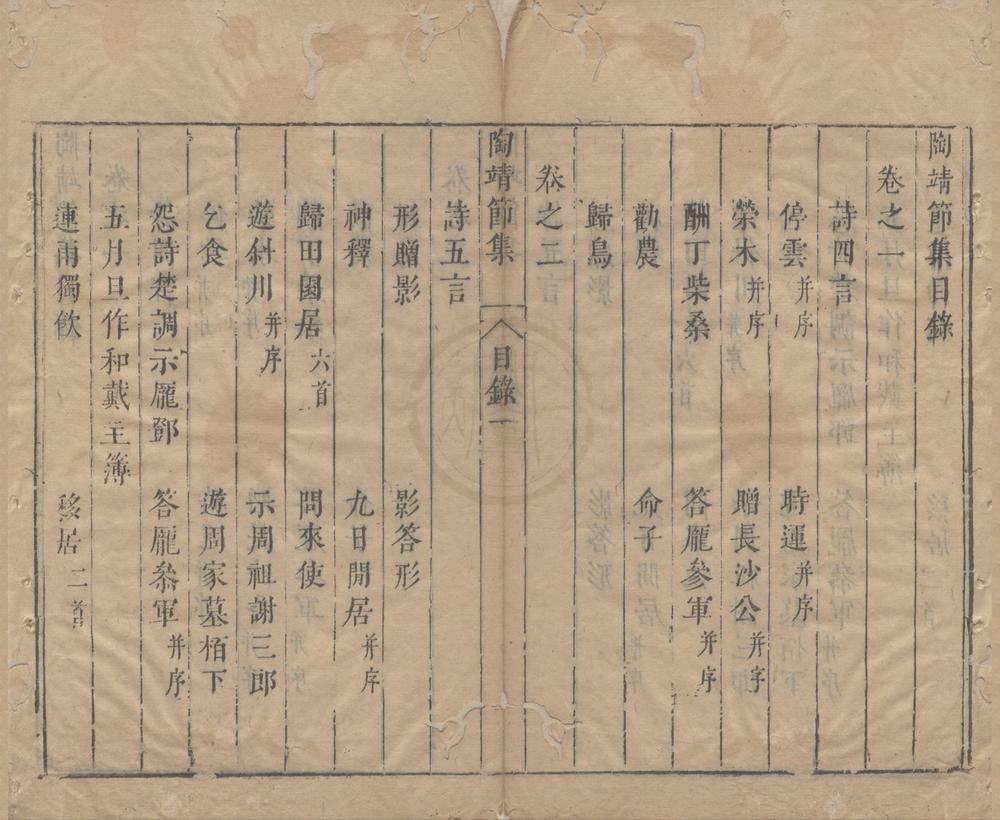 陶靖節集目錄
卷之一
詩四言
停雲并序 時運并序
榮木并序 贈長沙公并序
酬丁柴桑 答龐參軍并序
勸農 命子
歸鳥
卷之二
陶靖節集 目錄 一
詩五言
形贈影 影答形
神釋 九日閒居并序
歸田園居六首 問來使
遊斜川并序 示周祖謝三郎
乞食 遊周家墓栢下
怨詩楚調示龐鄧 答龐叅軍并序
五月旦作和戴主簿
連雨獨飲 移居二首